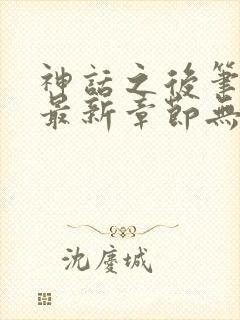 神話之後筆
最新章節無
沈慶城